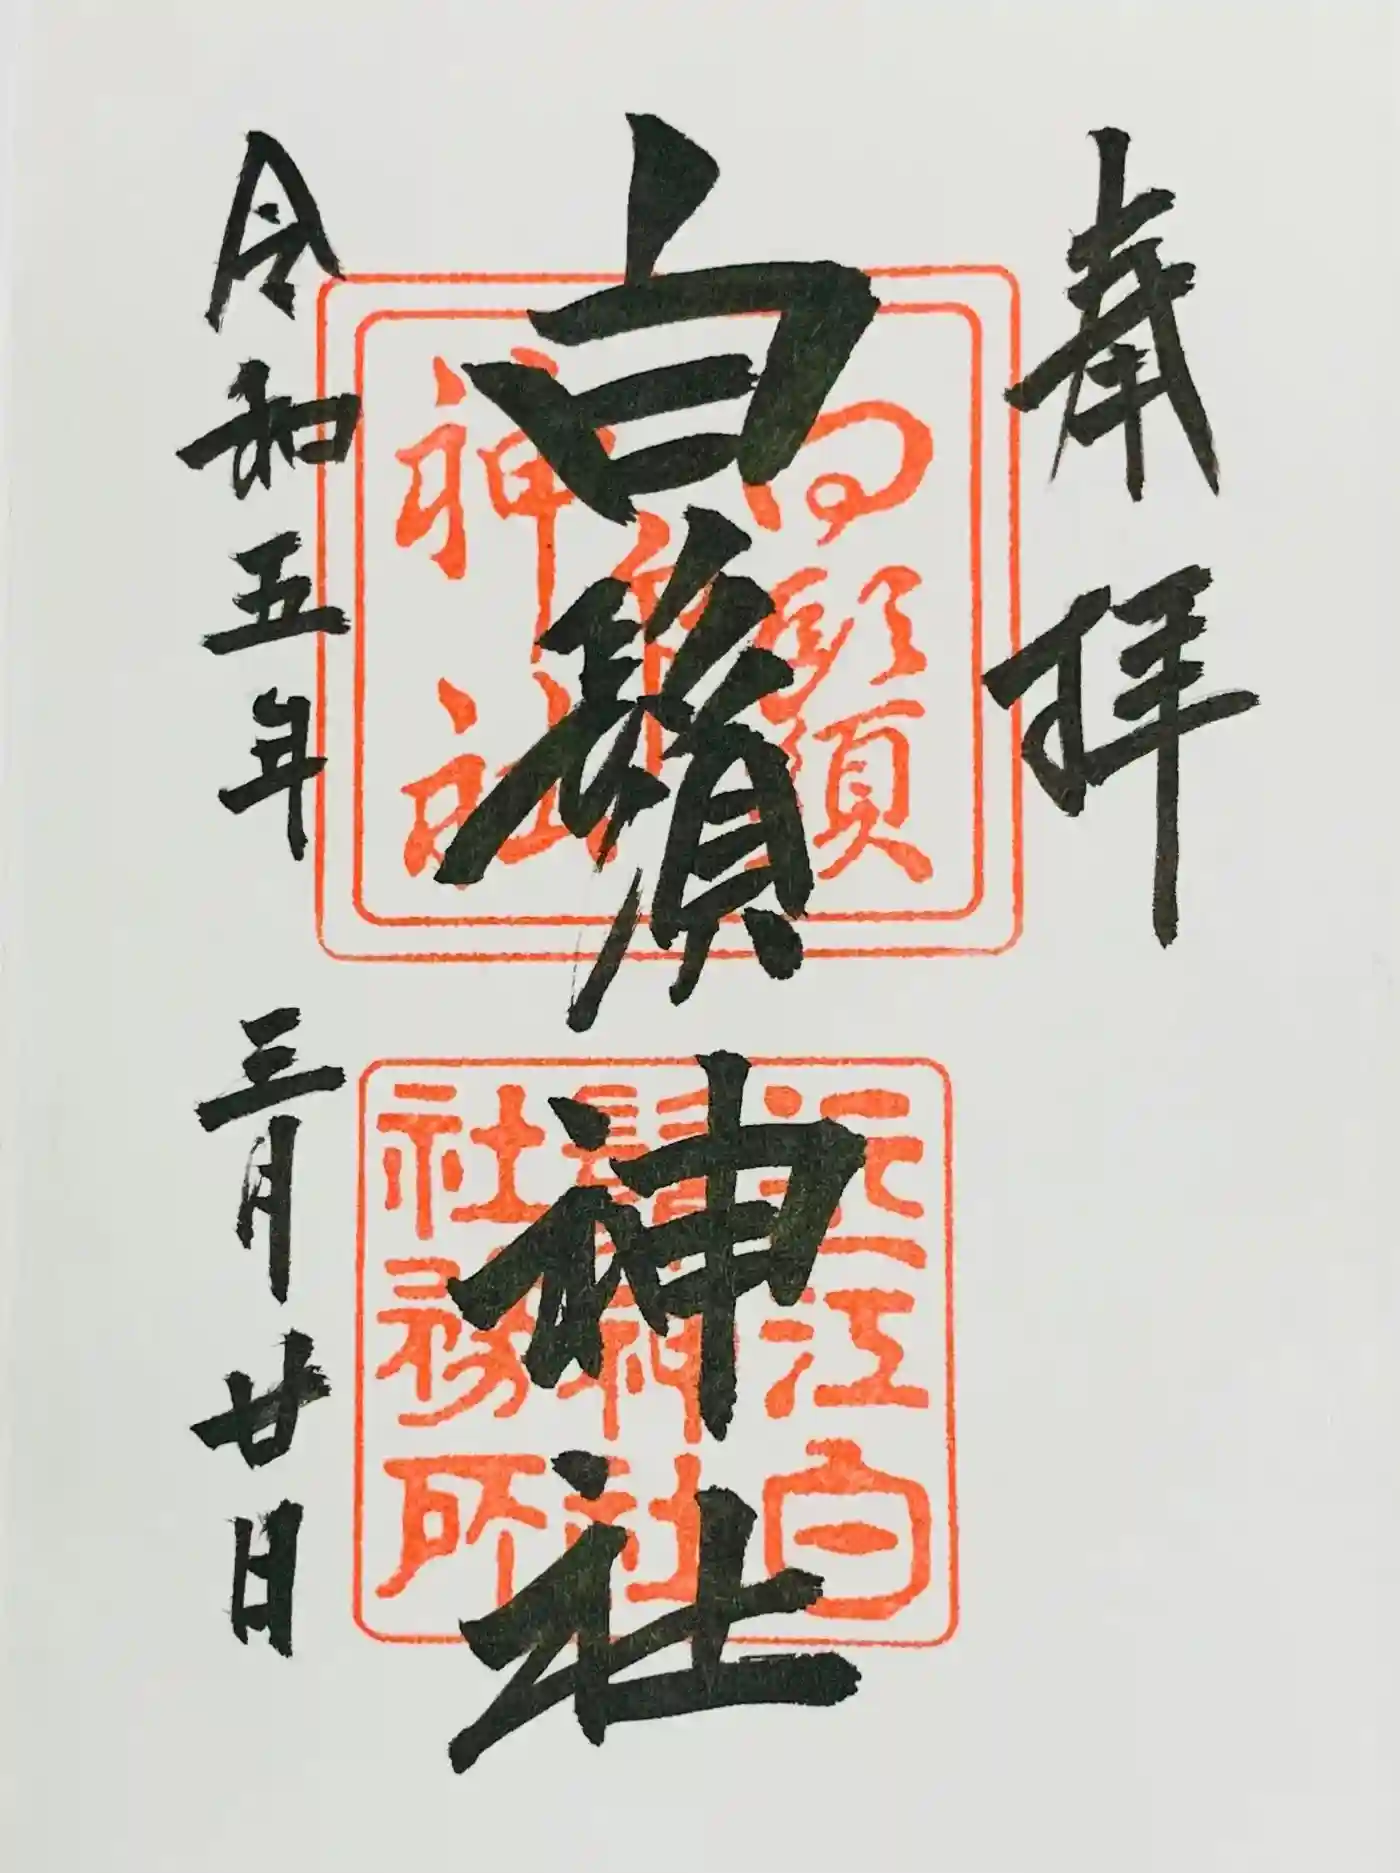 奉拝
白鬚神社
令和五年 三月廿日
神社
近江白
鬚神社
社務所